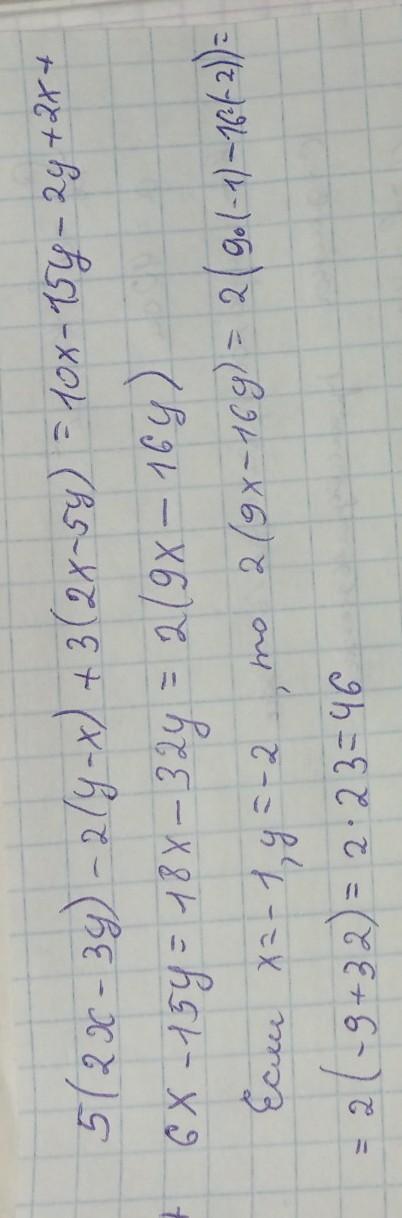 5(2x-3y)-2(y-x)+3(2x-5y)=10x-15y-2y+2x+
+6x-15y=18x-32y=2(9x-16y)
Если x=-1, y=-2, то 2(9x-16y)=2(9·(-1)-16·(-2))=
=2(-9+32)=2·23=46